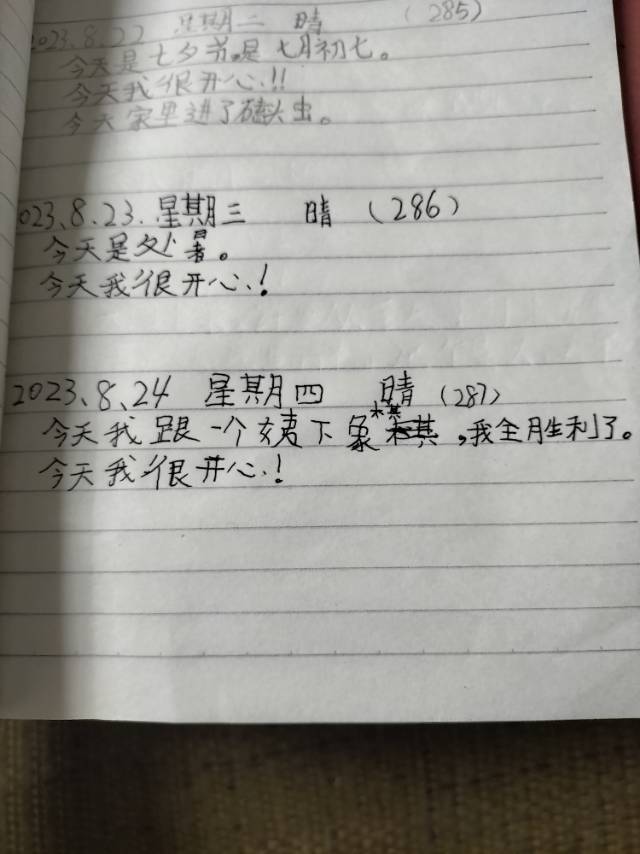 2023.8.22 星期二 晴 (285)
今天是七夕节,是七月初七。
今天我很开心!!
今天家里进了磕头虫。
023.8.23. 星期三 晴 (286)
今天是处暑。
今天我很开心!
2023.8.24 星期四 晴 (287)
今天我跟一个姨下象棋,我全胜利了。
今天我很开心!